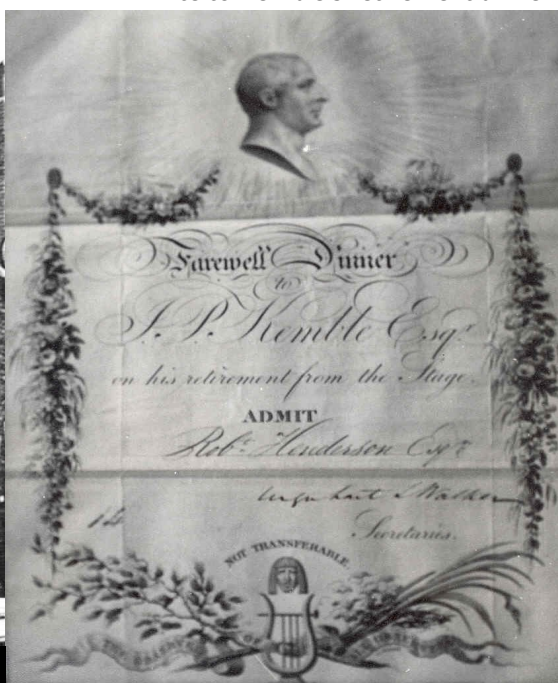 Farewell Dinner
to
J. P. Kemble Esqr.
on his retirement from the Stage.
ADMIT
Robt. Henderson Esqr
Urquhart & Walker
Secretaries.
NOT TRANSFERABLE